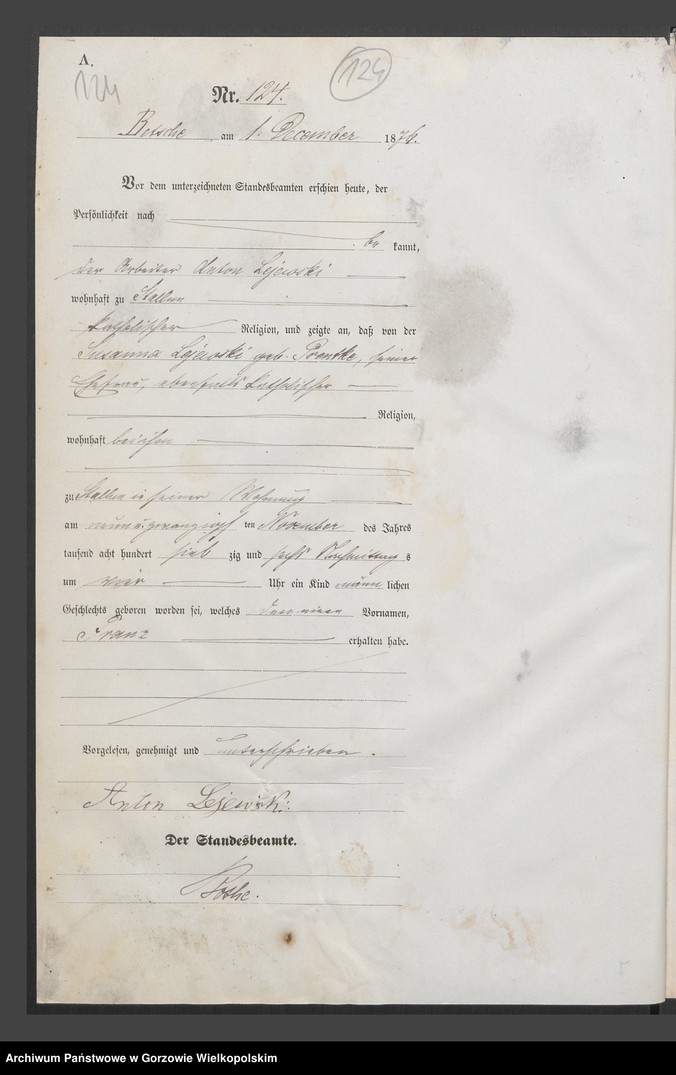 A.
124
124
Nr. 124.
Betsche am 1. December 1876.
Vor dem unterzeichneten Standesbeamten erschien heute, der
Persönlichkeit nach
be kannt,
der Arbeiter Anton Lejewski
wohnhaft zu Stallun
katholischer Religion, und zeigte an, daß von der
Susanna Lejewski geb. seiner
Ehefrau, ebenfalls katholischer
Religion,
wohnhaft bei ihm
zu Stallun in seiner Wohnung
am neun u. zwanzigsten November des Jahres
tausend acht hundert sieb zig und sechs Nachmittag s
um vier Uhr ein Kind männ lichen
Geschlechts geboren worden sei, welches den einen Vornamen,
Franz erhalten habe.
Vorgelesen, genehmigt und unterschrieben.
Anton Lejewski.
Der Standesbeamte.
Archiwum Państwowe w Gorzowie Wielkopolskim